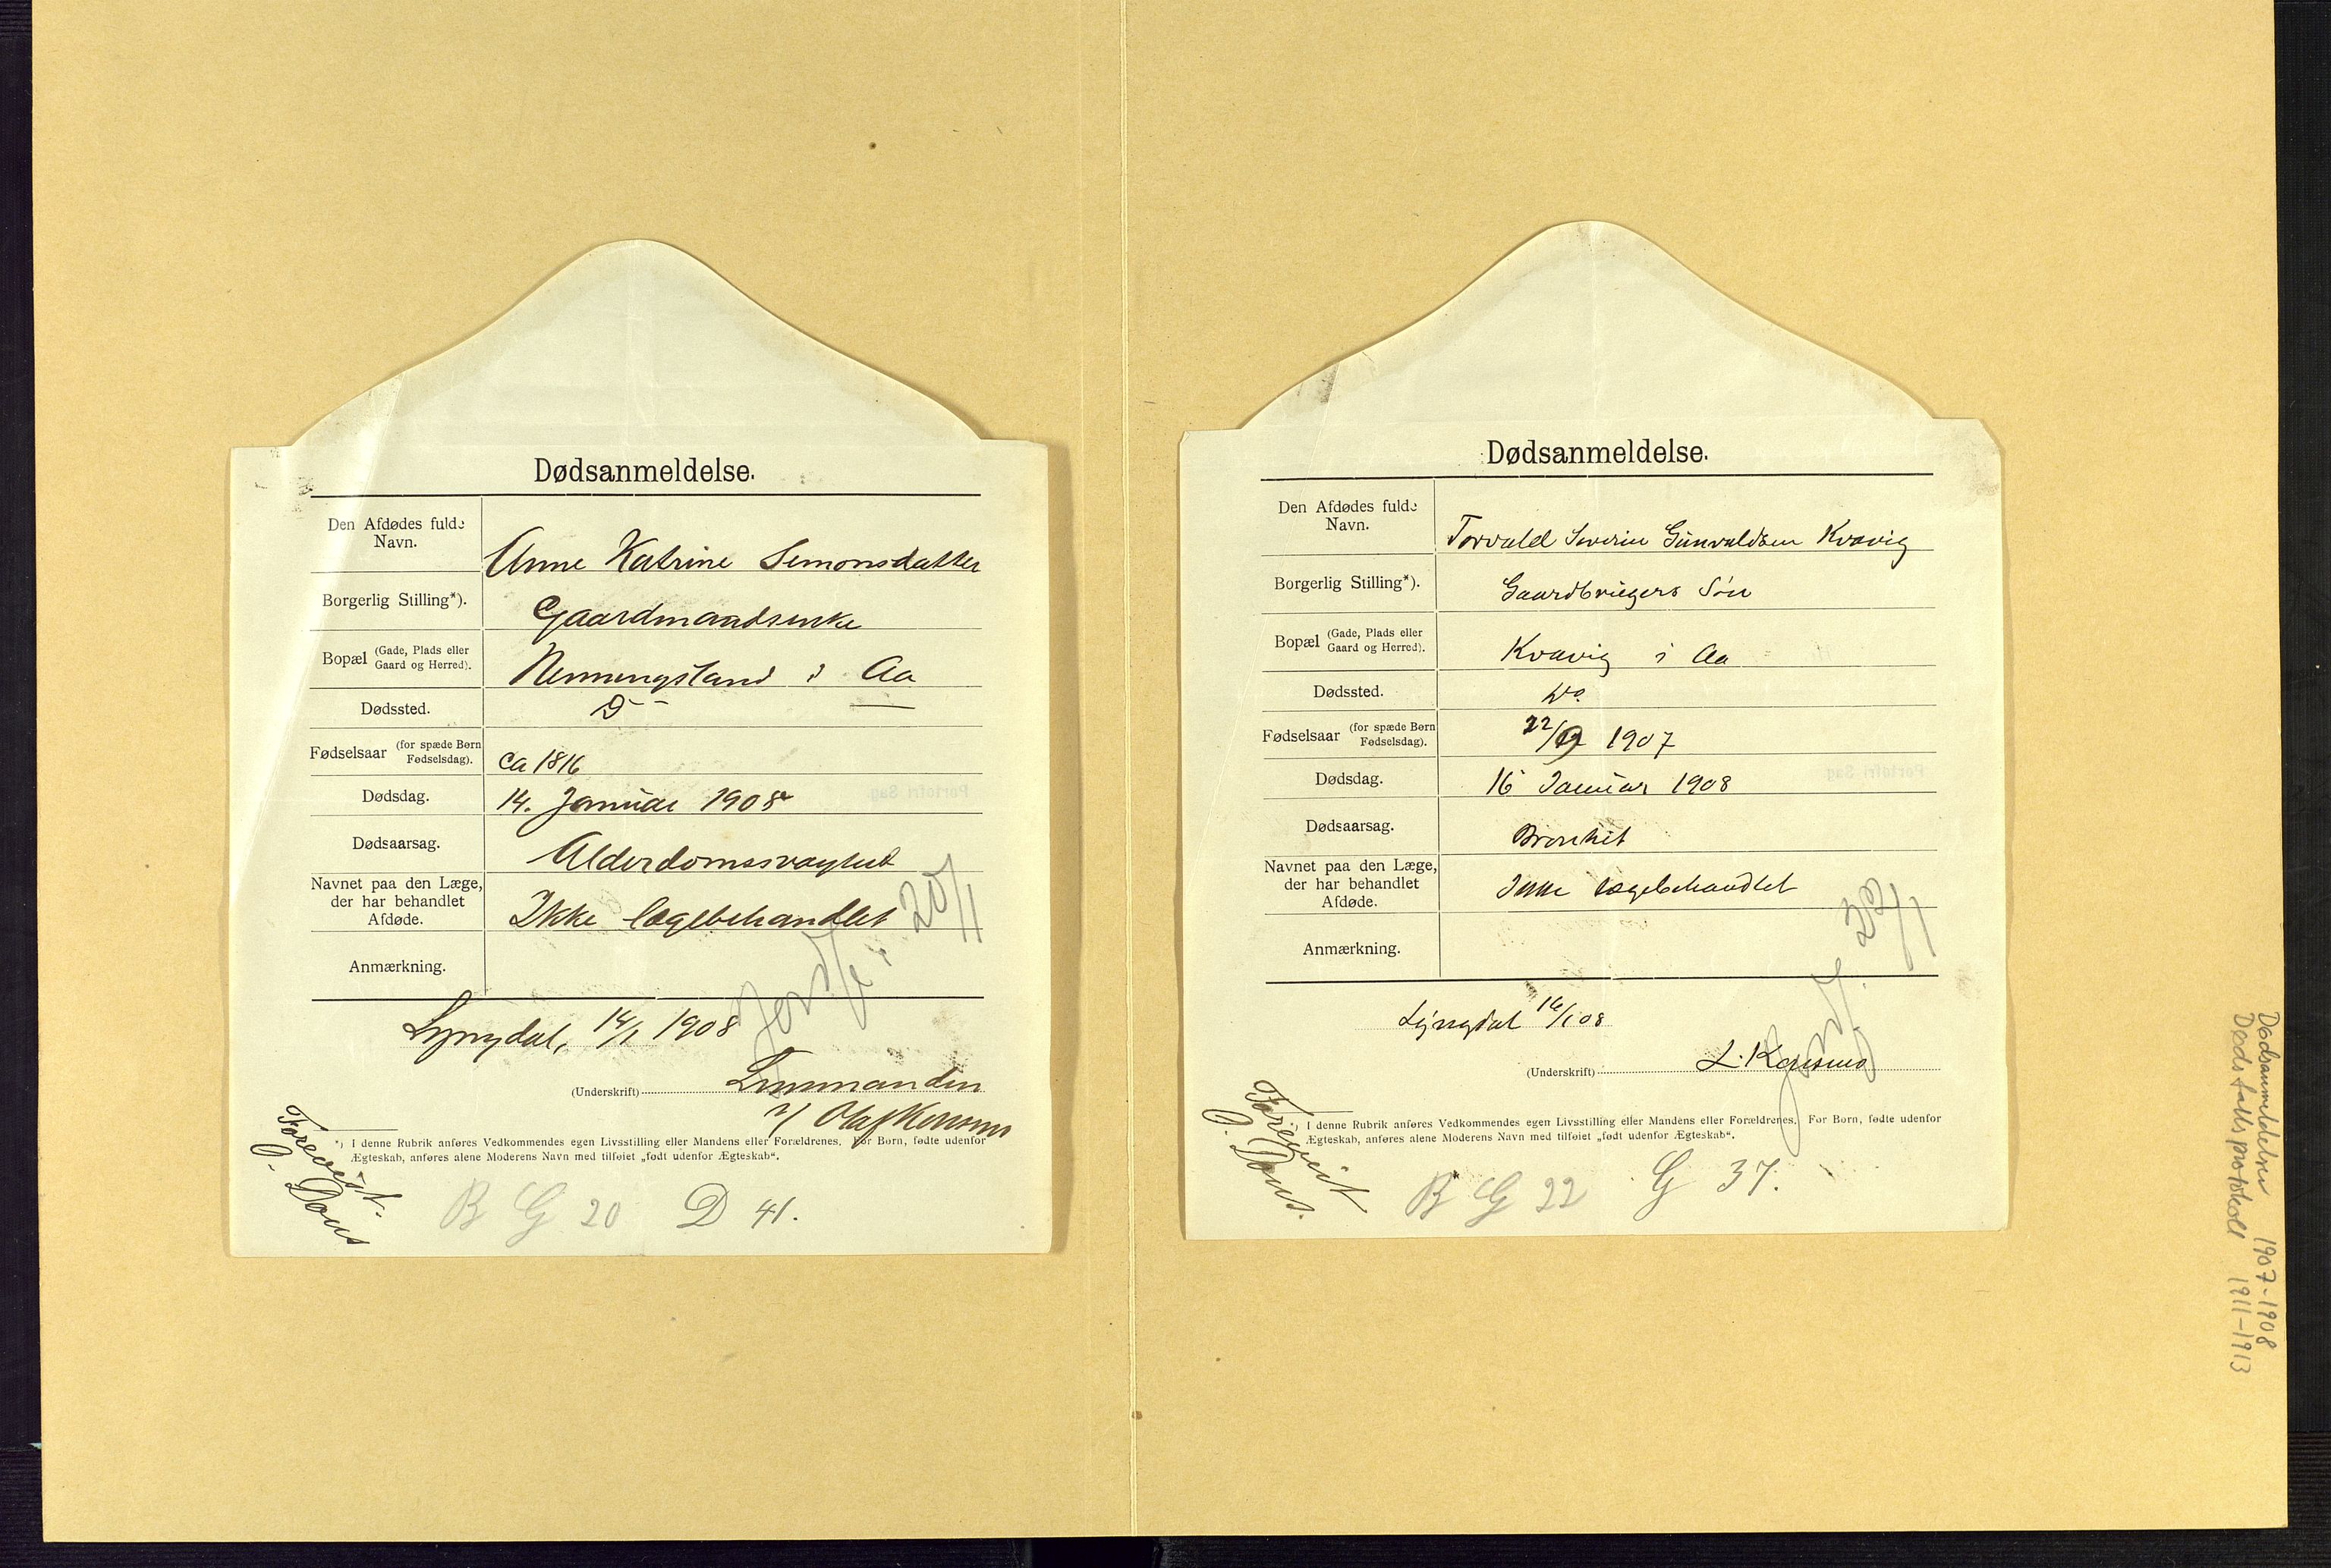 Dødsanmeldelse.
Den Afdødes fulde
Navn.
Anne Katrine Simonsdatter
Borgerlig Stilling*).
Gaardmandsenke
Bopæl (Gade, Plads eller
Gaard og Herred).
Nenningsland i Aa
Dødssted.
D--
Fødselsaar (for spæde Børn
Fødselsdag).
ca 1816
Dødsdag.
14. Januar 1908
Dødsaarsag.
Alderdomssvaghed
Navnet paa den Læge,
der har behandlet
Afdøde.
Ikke lægebehandlet
Anmærkning.
Jordf: 20/1
Lyngdal, 14/1 1908
(Underskrift)
Lensmanden
v/ Olaf Kersmo
*) I denne Rubrik anføres Vedkommendes egen Livsstilling eller Mandens eller Forældrenes. For Børn, fødte udenfor
Ægteskab, anføres alene Moderens Navn med tilføiet „født udenfor Ægteskab“.
Forevist.
O. Dons
B G 20 D 41.
Dødsanmeldelse.
Den Afdødes fulde
Navn.
Torvald Severin Gunvaldsen Kvavig
Borgerlig Stilling*).
Gaardbrugers Søn
Bopæl (Gade, Plads eller
Gaard og Herred).
Kvavig i Aa
Dødssted.
do.
Fødselsaar (for spæde Børn
Fødselsdag).
22/9 1907
Dødsdag.
16 Januar 1908
Dødsaarsag.
Bronkit
Navnet paa den Læge,
der har behandlet
Afdøde.
Ikke lægebehandlet
Anmærkning.
Jordf. 22/1
Lyngdal 16/1 08
(Underskrift)
L. Kersmo
I denne Rubrik anføres Vedkommendes egen Livsstilling eller Mandens eller Forældrenes. For Børn, fødte udenfor
Ægteskab, anføres alene Moderens Navn med tilføiet „født udenfor Ægteskab“.
Forevist
O. Dons.
B G 22 G 37.
Dødsanmeldelser 1907-1908
Dødsfallsprotokoll 1911-1913